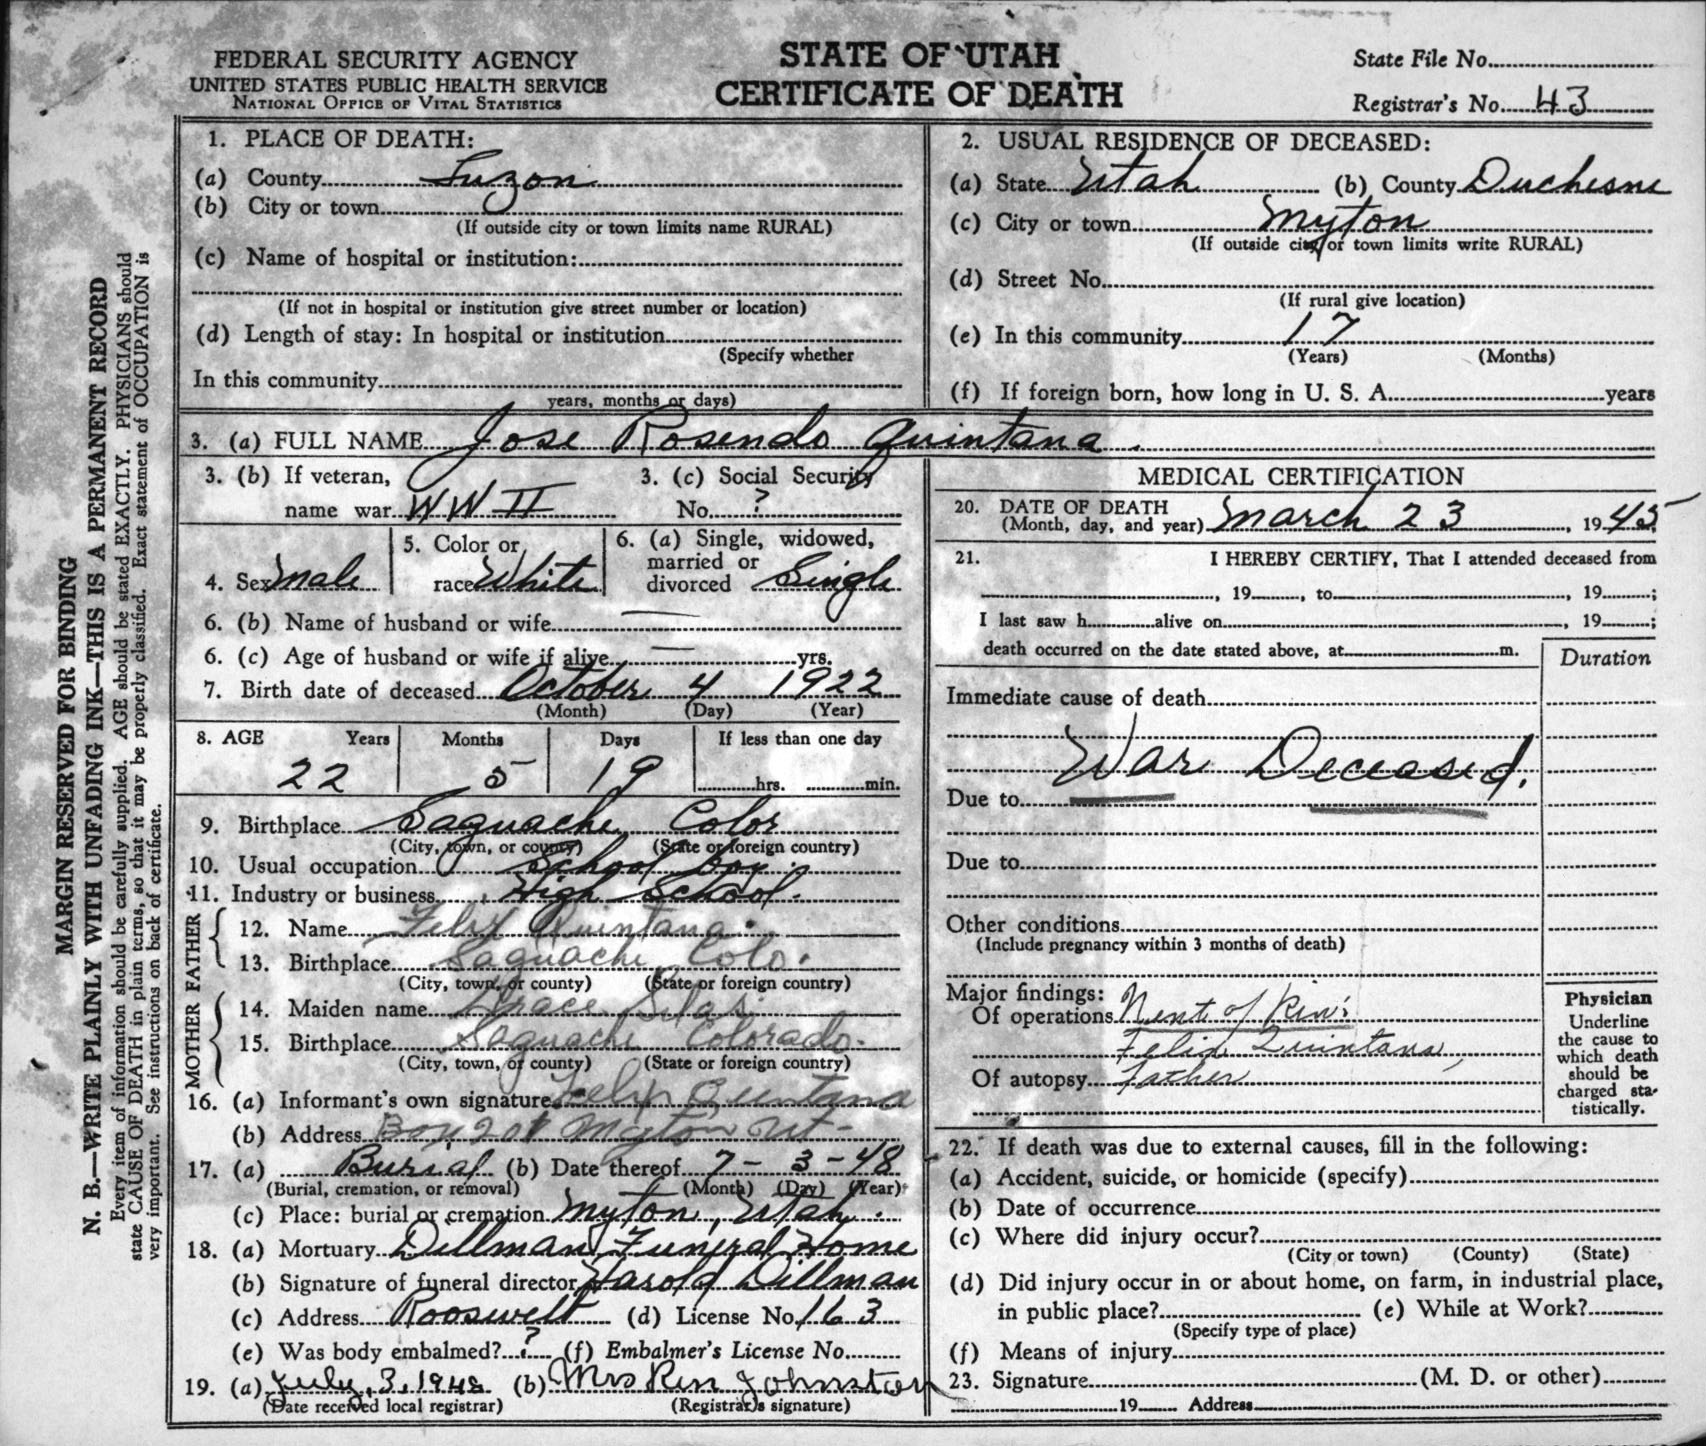 FEDERAL SECURITY AGENCY
UNITED STATES PUBLIC HEALTH SERVICE
NATIONAL OFFICE OF VITAL STATISTICS
STATE OF UTAH
CERTIFICATE OF DEATH
State File No.
Registrar's No. 43
MARGIN RESERVED FOR BINDING
N. B.—WRITE PLAINLY WITH UNFADING INK—THIS IS A PERMANENT RECORD
Every item of information should be carefully supplied. AGE should be stated EXACTLY. PHYSICIANS should
state CAUSE OF DEATH in plain terms, so that it may be properly classified. Exact statement of OCCUPATION is
very important. See instructions on back of certificate.
1. PLACE OF DEATH:
(a) County Luzon
(b) City or town
(If outside city or town limits name RURAL)
(c) Name of hospital or institution:
(If not in hospital or institution give street number or location)
(d) Length of stay: In hospital or institution
(Specify whether
In this community
years, months or days)
2. USUAL RESIDENCE OF DECEASED:
(a) State Utah (b) County Duchesne
(c) City or town Myton
(If outside city or town limits write RURAL)
(d) Street No.
(If rural give location)
(e) In this community 17
(Years) (Months)
(f) If foreign born, how long in U. S. A. years
3. (a) FULL NAME Jose Rosendo Quintana.
3. (b) If veteran,
name war WW II
3. (c) Social Security
No. ?
4. Sex Male
5. Color or
race White
6. (a) Single, widowed,
married or
divorced Single
6. (b) Name of husband or wife —
6. (c) Age of husband or wife if alive — yrs.
7. Birth date of deceased October 4 1922
(Month) (Day) (Year)
8. AGE Years Months Days If less than one day
22 5 19 hrs. min.
9. Birthplace Saguache Color
(City, town, or county) (State or foreign country)
10. Usual occupation School boy.
11. Industry or business High School.
FATHER
12. Name Felix Quintana.
13. Birthplace Saguache Colo.
(City, town, or county) (State or foreign country)
MOTHER
14. Maiden name Grace
15. Birthplace Saguache Colorado.
(City, town, or county) (State or foreign country)
16. (a) Informant's own signature Felix Quintana
(b) Address Box 201 Myton Ut-
17. (a) Burial (b) Date thereof 7-3-48
(Burial, cremation, or removal) (Month) (Day) (Year)
(c) Place: burial or cremation Myton, Utah.
18. (a) Mortuary Dillman Funeral Home
(b) Signature of funeral director Harold Dillman
(c) Address Roosevelt (d) License No. 163
(e) Was body embalmed? ? (f) Embalmer's License No.
19. (a) July, 3, 1948 (b) Mrs Ren Johnston
(Date received local registrar) (Registrar's signature)
MEDICAL CERTIFICATION
20. DATE OF DEATH
(Month, day, and year) March 23, 1945
21. I HEREBY CERTIFY, That I attended deceased from
, 19 , to , 19 ;
I last saw h alive on , 19 ;
death occurred on the date stated above, at m.
Duration
Immediate cause of death
War Deceased.
Due to
Due to
Other conditions
(Include pregnancy within 3 months of death)
Major findings:
Of operations Next of Kin:
Felix Quintana,
Of autopsy Father
Physician
Underline
the cause to
which death
should be
charged sta-
tistically.
22. If death was due to external causes, fill in the following:
(a) Accident, suicide, or homicide (specify)
(b) Date of occurrence
(c) Where did injury occur?
(City or town) (County) (State)
(d) Did injury occur in or about home, on farm, in industrial place,
in public place? (e) While at Work?
(Specify type of place)
(f) Means of injury
23. Signature (M. D. or other)
19 Address